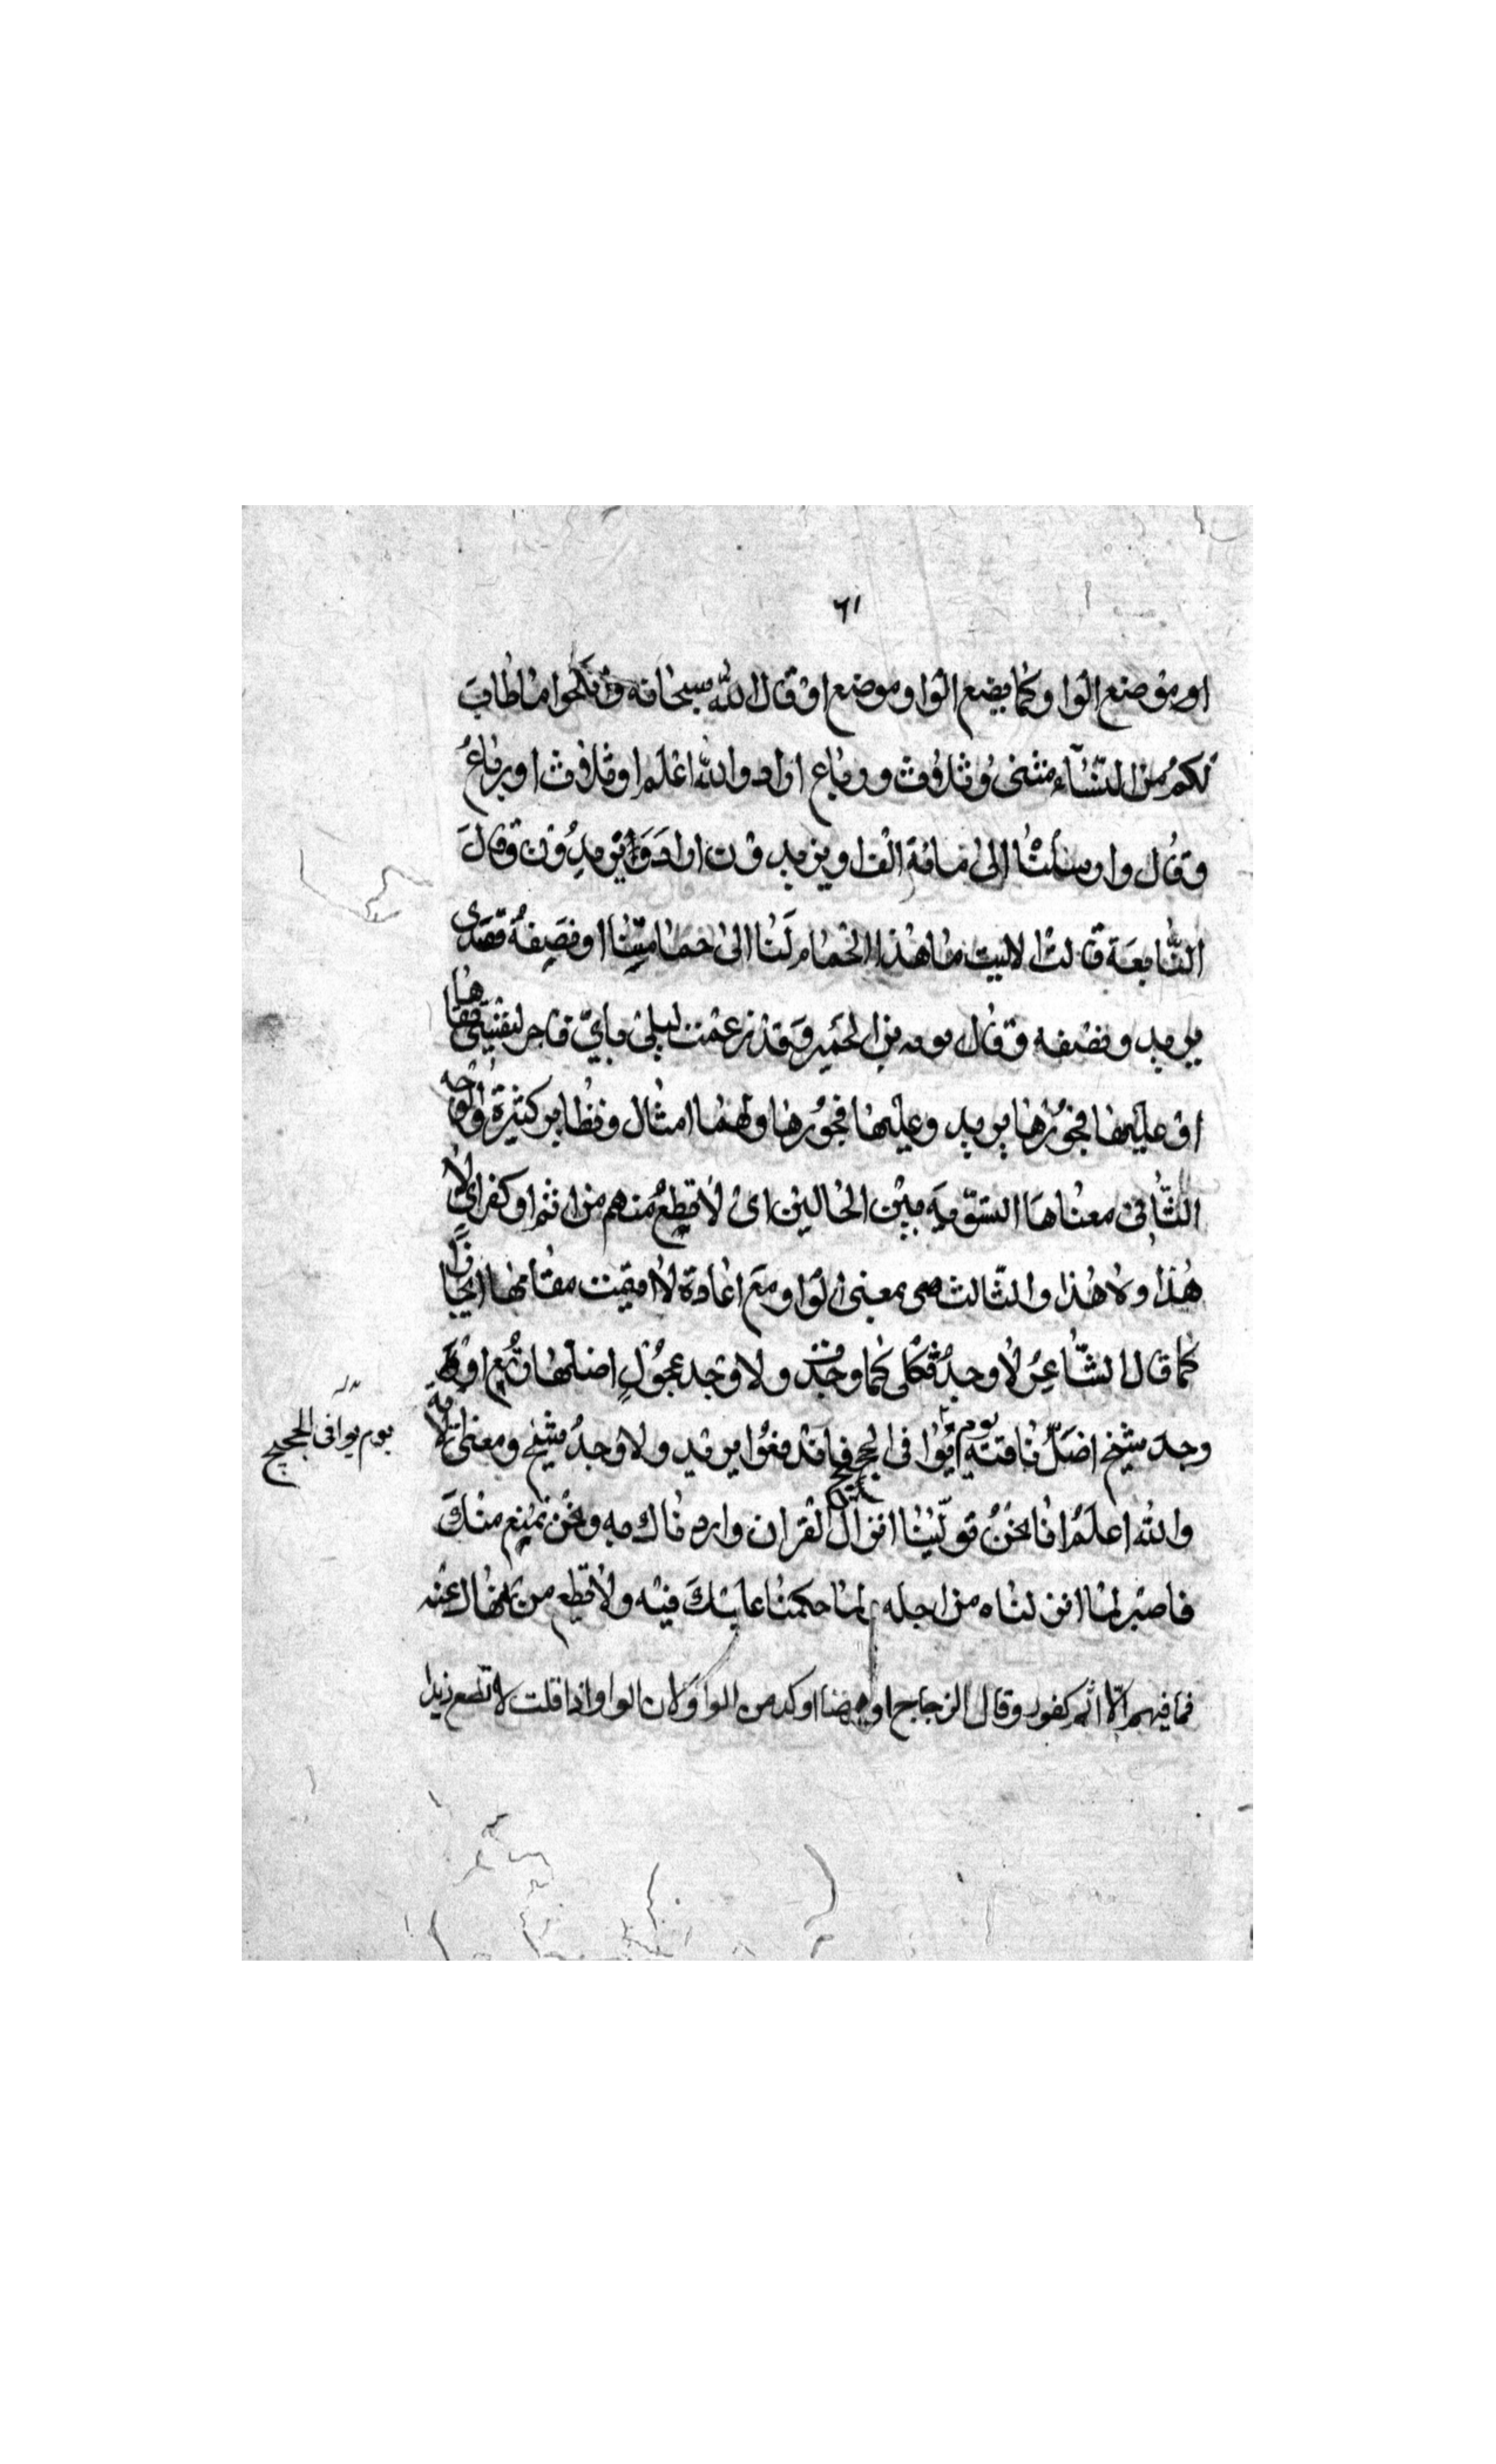 ٦١
او موضع الواو كما يضع الواو موضع اوْ قال الله سبحانه فانكحوا ما طابَ
لكم من النّسآء مثنى وثلاث ورباع اراد والله اعلم او ثلاث او رباعُ
وقال وارسلناه الى مائة الف او يزيدون اراد ويزيدُون وقال
النّابغة قالت الا ليت ما هذا الحمام لَنا الى حمامتنا او نصفهُ فقدى
يريد ونصفه وقال توبه بن الحمَير وَقد زعمت ليلى بأنّى فاجر لنفسى تقاها
اوْ عليها فجورها يريد وعليها فجورها ولهما امثال ونظاير كثيرة والوجه
الثّانى معناها التسّويه بين الحالين اى لا تطع منهم من اثم او كفر اى لا
هذا ولا هذا والثالث هى بمعنى الواو ومع اعادة لا اقيمت مقامها ايجازًا
كما قال الشّاعِرُ لا وجدُ ثكلى كما وجدت ولا وجد عجولٍ اضلها رُبَع اوْ
وجد شيخ اضلّ ناقته يوم توافى الحجيج فاندفعوا يريد ولا وجدُ شيخ ومعنى الآية
يوم توافى الحجيج
والله اعلمُ انا نحنُ تولّيْنا انزال القران واردناك به ونحْن نمْنع منكَ
فاصبر لما انزلناه من اجله لما حكمنا عليْكَ فيْه ولا تطع من نهاك عنْه
فما فيهم الّا اثم كفور وقال الزجاج او ههنا اوكد من الواو لان الواو اذا قلت لا تطع زيدا